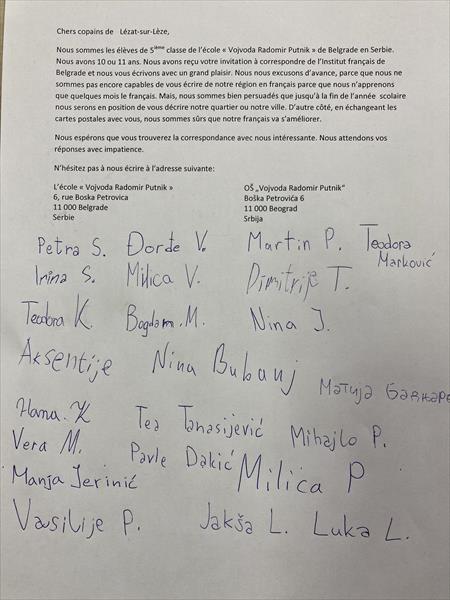 Chers copains de Lézat-sur-Lèze,
Nous sommes les élèves de 5ième classe de l'école « Vojvoda Radomir Putnik » de Belgrade en Serbie.
Nous avons 10 ou 11 ans. Nous avons reçu votre invitation à correspondre de l'Institut français de
Belgrade et nous vous écrivons avec un grand plaisir. Nous nous excusons d'avance, parce que nous ne
sommes pas encore capables de vous écrire de notre région en français parce que nous n'apprenons
que quelques mois le français. Mais, nous sommes bien persuadés que jusqu'à la fin de l'année scolaire
nous serons en position de vous décrire notre quartier ou notre ville. D'autre côté, en échangeant les
cartes postales avec vous, nous sommes sûrs que notre français va s'améliorer.
Nous espérons que vous trouverez la correspondance avec nous intéressante. Nous attendons vos
réponses avec impatience.
N'hésitez pas à nous écrire à l'adresse suivante:
L'école « Vojvoda Radomir Putnik » OŠ „Vojvoda Radomir Putnik"
6, rue Boska Petrovica Boška Petrovića 6
11 000 Belgrade 11 000 Beograd
Serbie Srbija
Petra S. Đorđe V. Martin P. Teodora
Marković
Irina S. Milica V. Dimitrije T.
Teodora K. Bogdan. M. Nina J.
Aksentije Nina Bubanj
Матија
Hana. K Tea Tanasijević Mihajlo P.
Vera M. Pavle Dakić
Manja Jerinić Milica P
Vasilije P. Jakša L. Luka L.